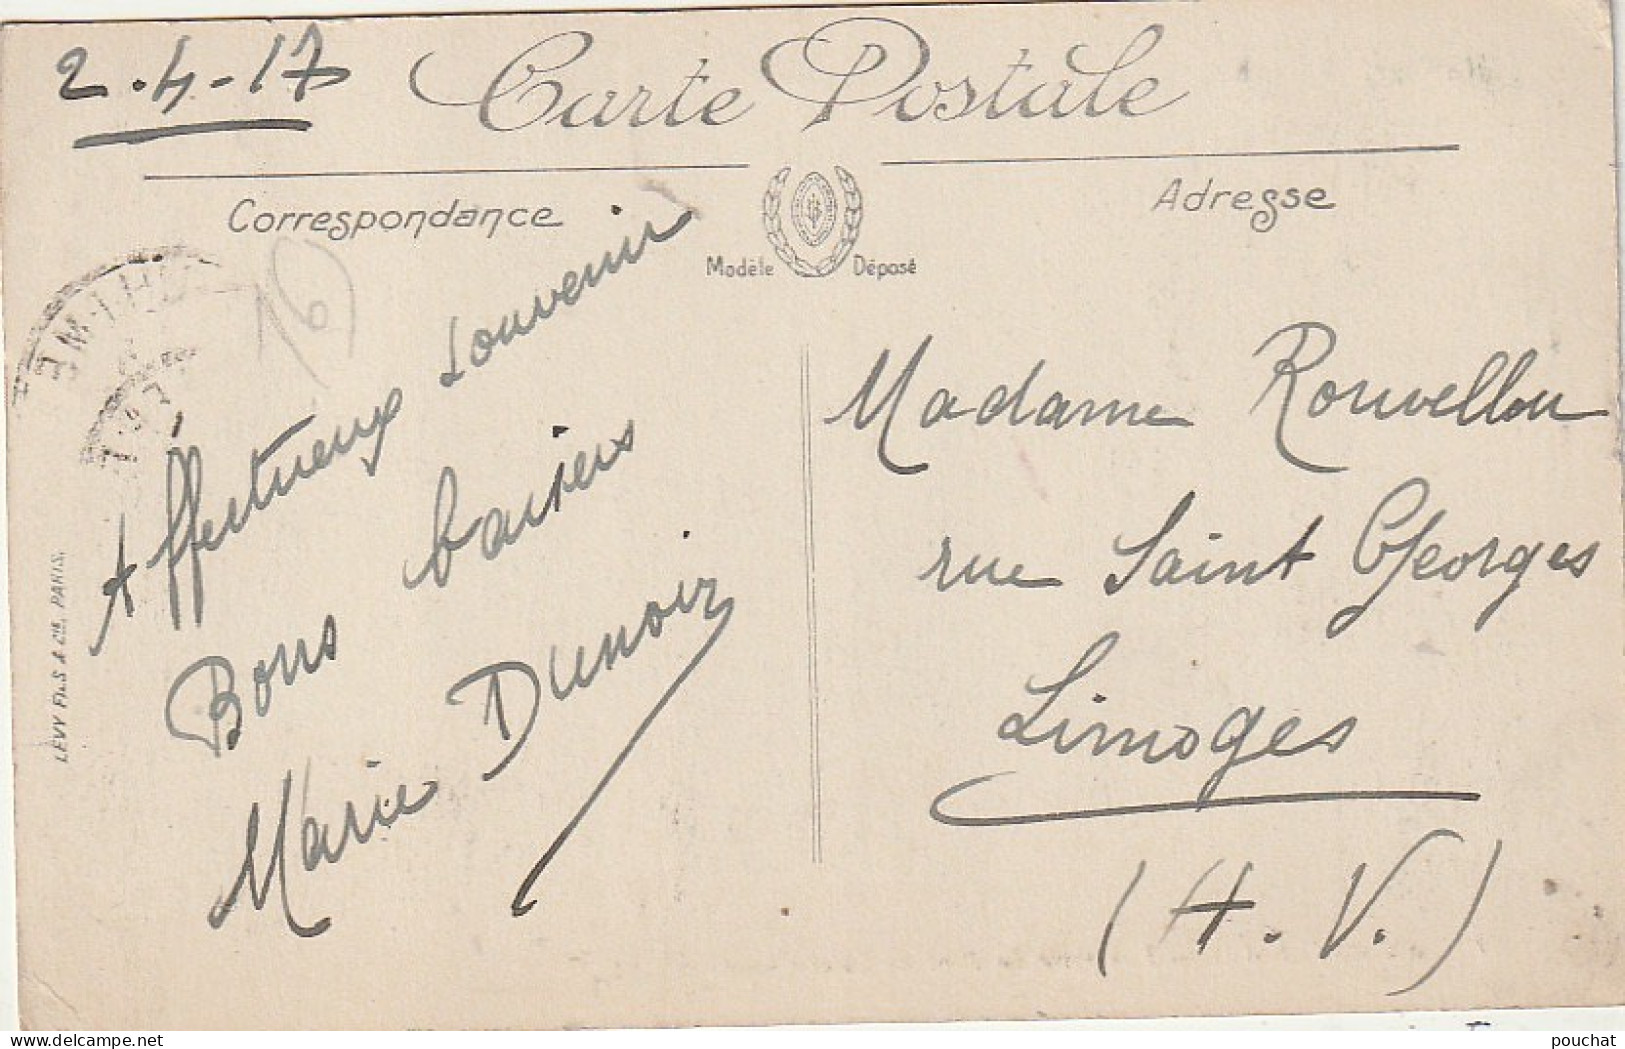 2.4.17
Carte Postale
Correspondance
Adresse
Modèle Déposé
16
Affectueux souvenir
Bons baisers
Marie Dunoir
Madame Rouvellou
rue Saint Georges
Limoges
(H.V.)
LEVY Fils & Cie, PARIS.
pouchat